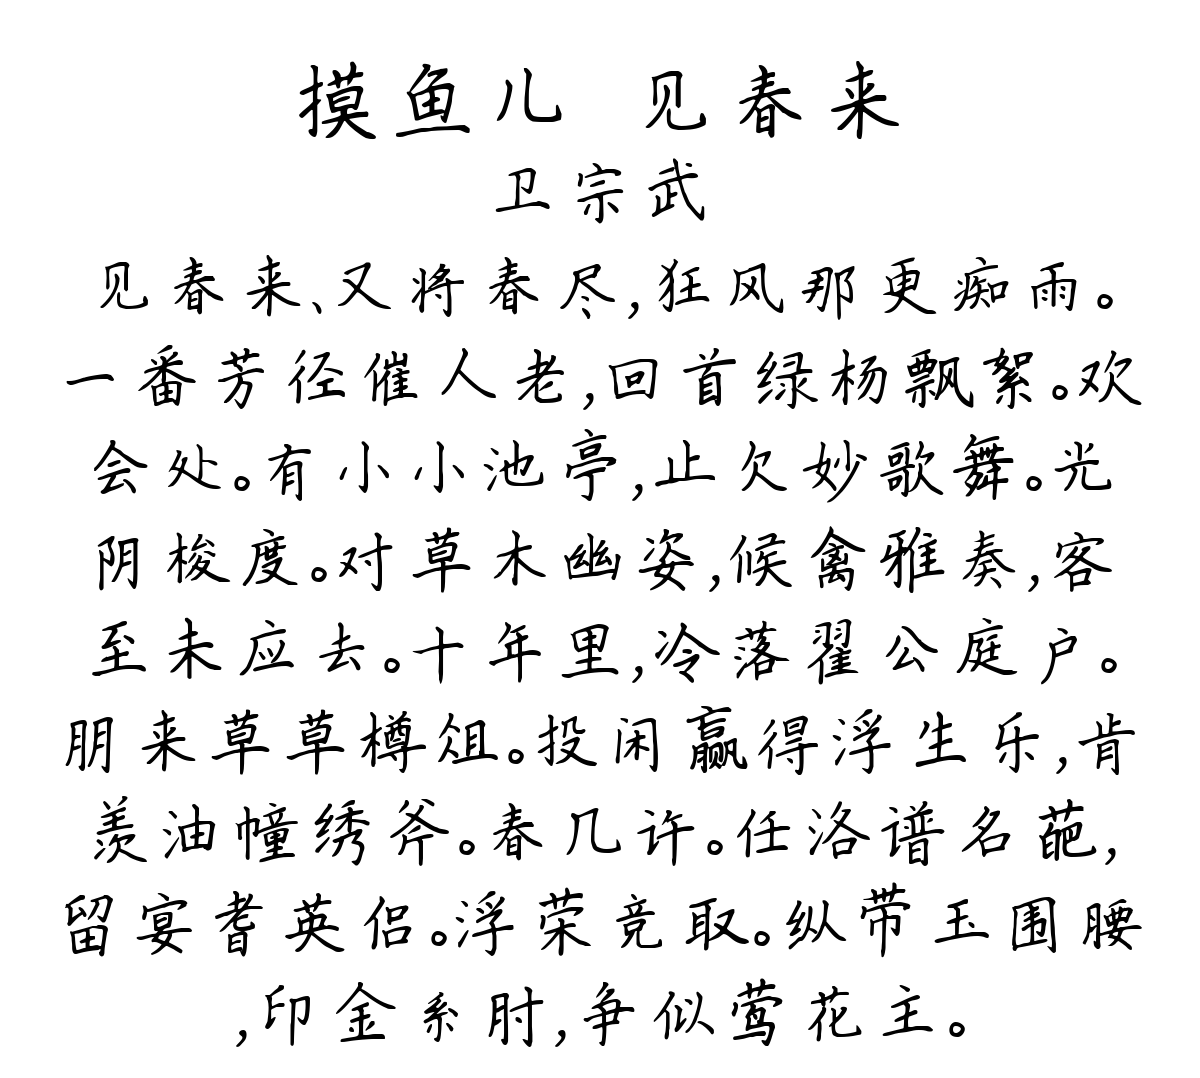 摸鱼儿 见春来
卫宗武
见春来、又将春尽,狂风那更痴雨。
一番芳径催人老,回首绿杨飘絮。欢
会处。有小小池亭,止欠妙歌舞。光
阴梭度。对草木幽姿,候禽雅奏,客
至未应去。十年里,冷落翟公庭户。
朋来草草樽俎。投闲赢得浮生乐,肯
羡油幢绣斧。春几许。任洛谱名葩,
留宴耆英侣。浮荣竞取。纵带玉围腰
,印金系肘,争似莺花主。